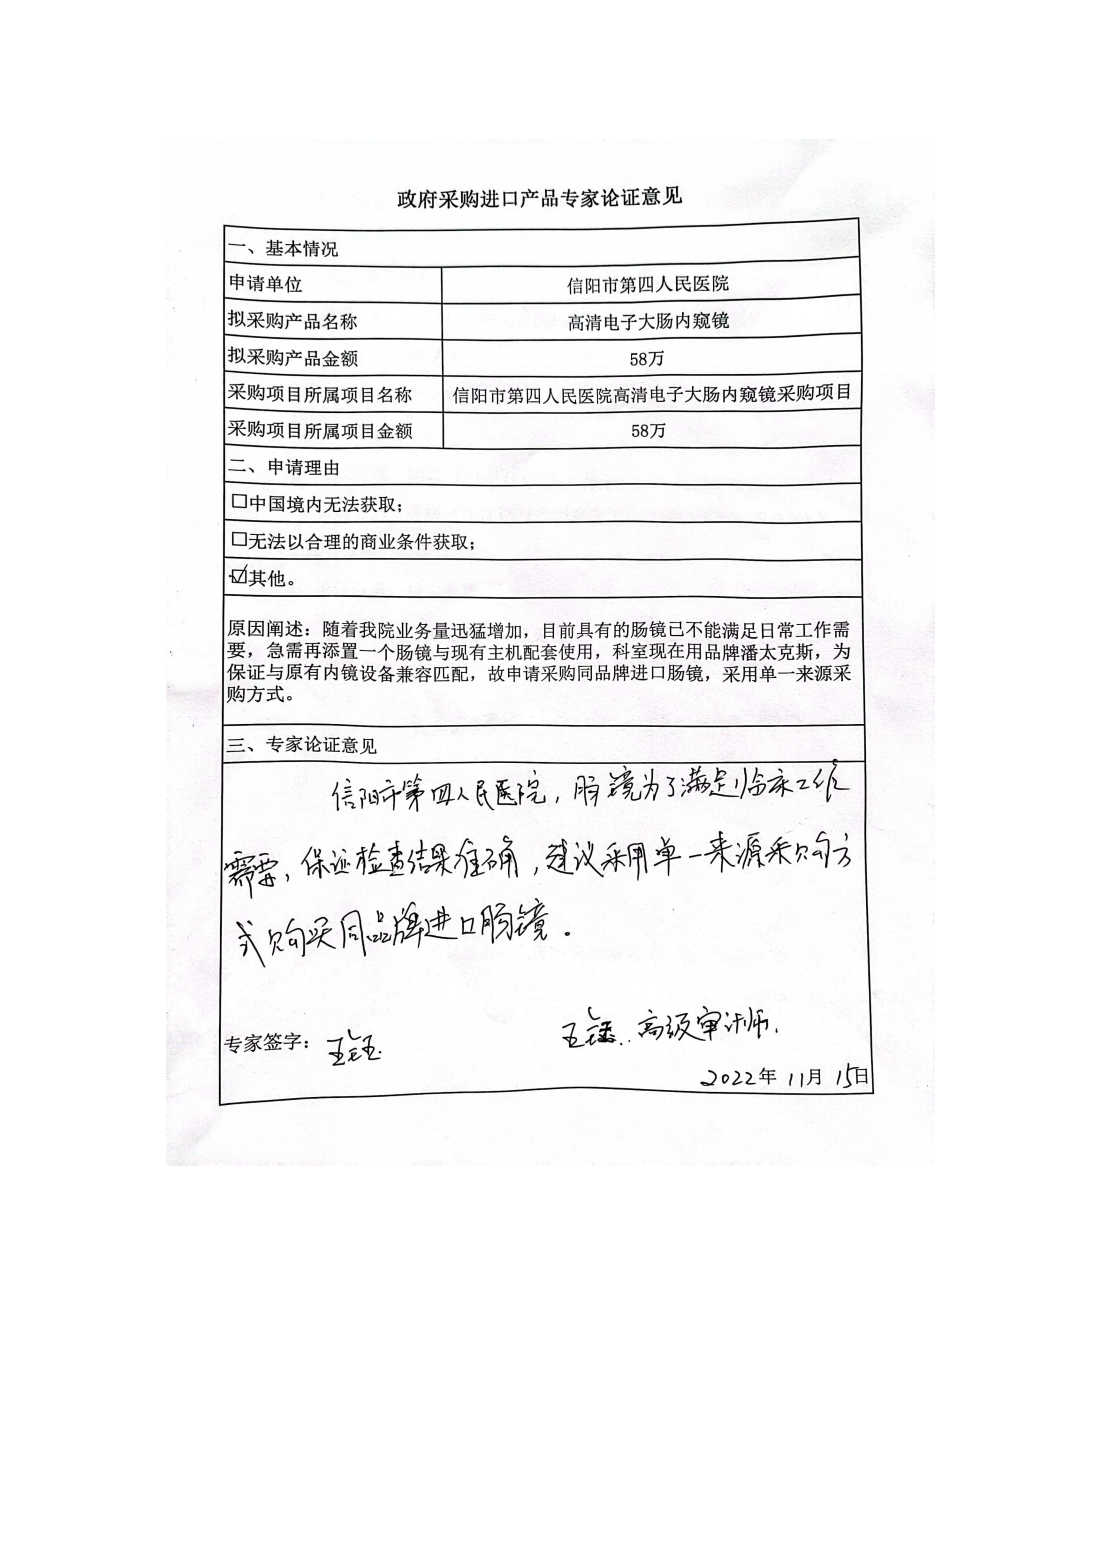 政府采购进口产品专家论证意见
一、基本情况
申请单位 信阳市第四人民医院
拟采购产品名称 高清电子大肠内窥镜
拟采购产品金额 58万
采购项目所属项目名称 信阳市第四人民医院高清电子大肠内窥镜采购项目
采购项目所属项目金额 58万
二、申请理由
□中国境内无法获取；
□无法以合理的商业条件获取；
☑其他。
原因阐述：随着我院业务量迅猛增加，目前具有的肠镜已不能满足日常工作需
要，急需再添置一个肠镜与现有主机配套使用，科室现在用品牌潘太克斯，为
保证与原有内镜设备兼容匹配，故申请采购同品牌进口肠镜，采用单一来源采
购方式。
三、专家论证意见
信阳市第四人民医院，肠镜为了满足临床工作
需要，保证检查结果准确，建议采用单一来源采购方
式购买同品牌进口肠镜。
王 高级审计师.
专家签字： 王
2022年 11月 15日